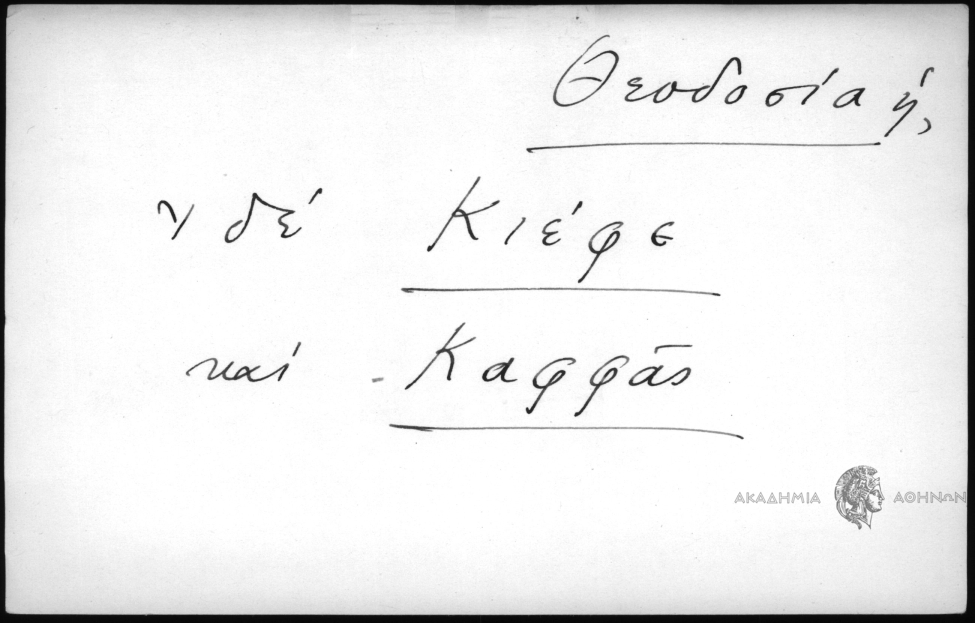 Θεοδοσία ἡ,
ν δέ Κιέφε
καί - Καφφᾶς
ΑΚΑΔΗΜΙΑ ΑΘΗΝΩΝ